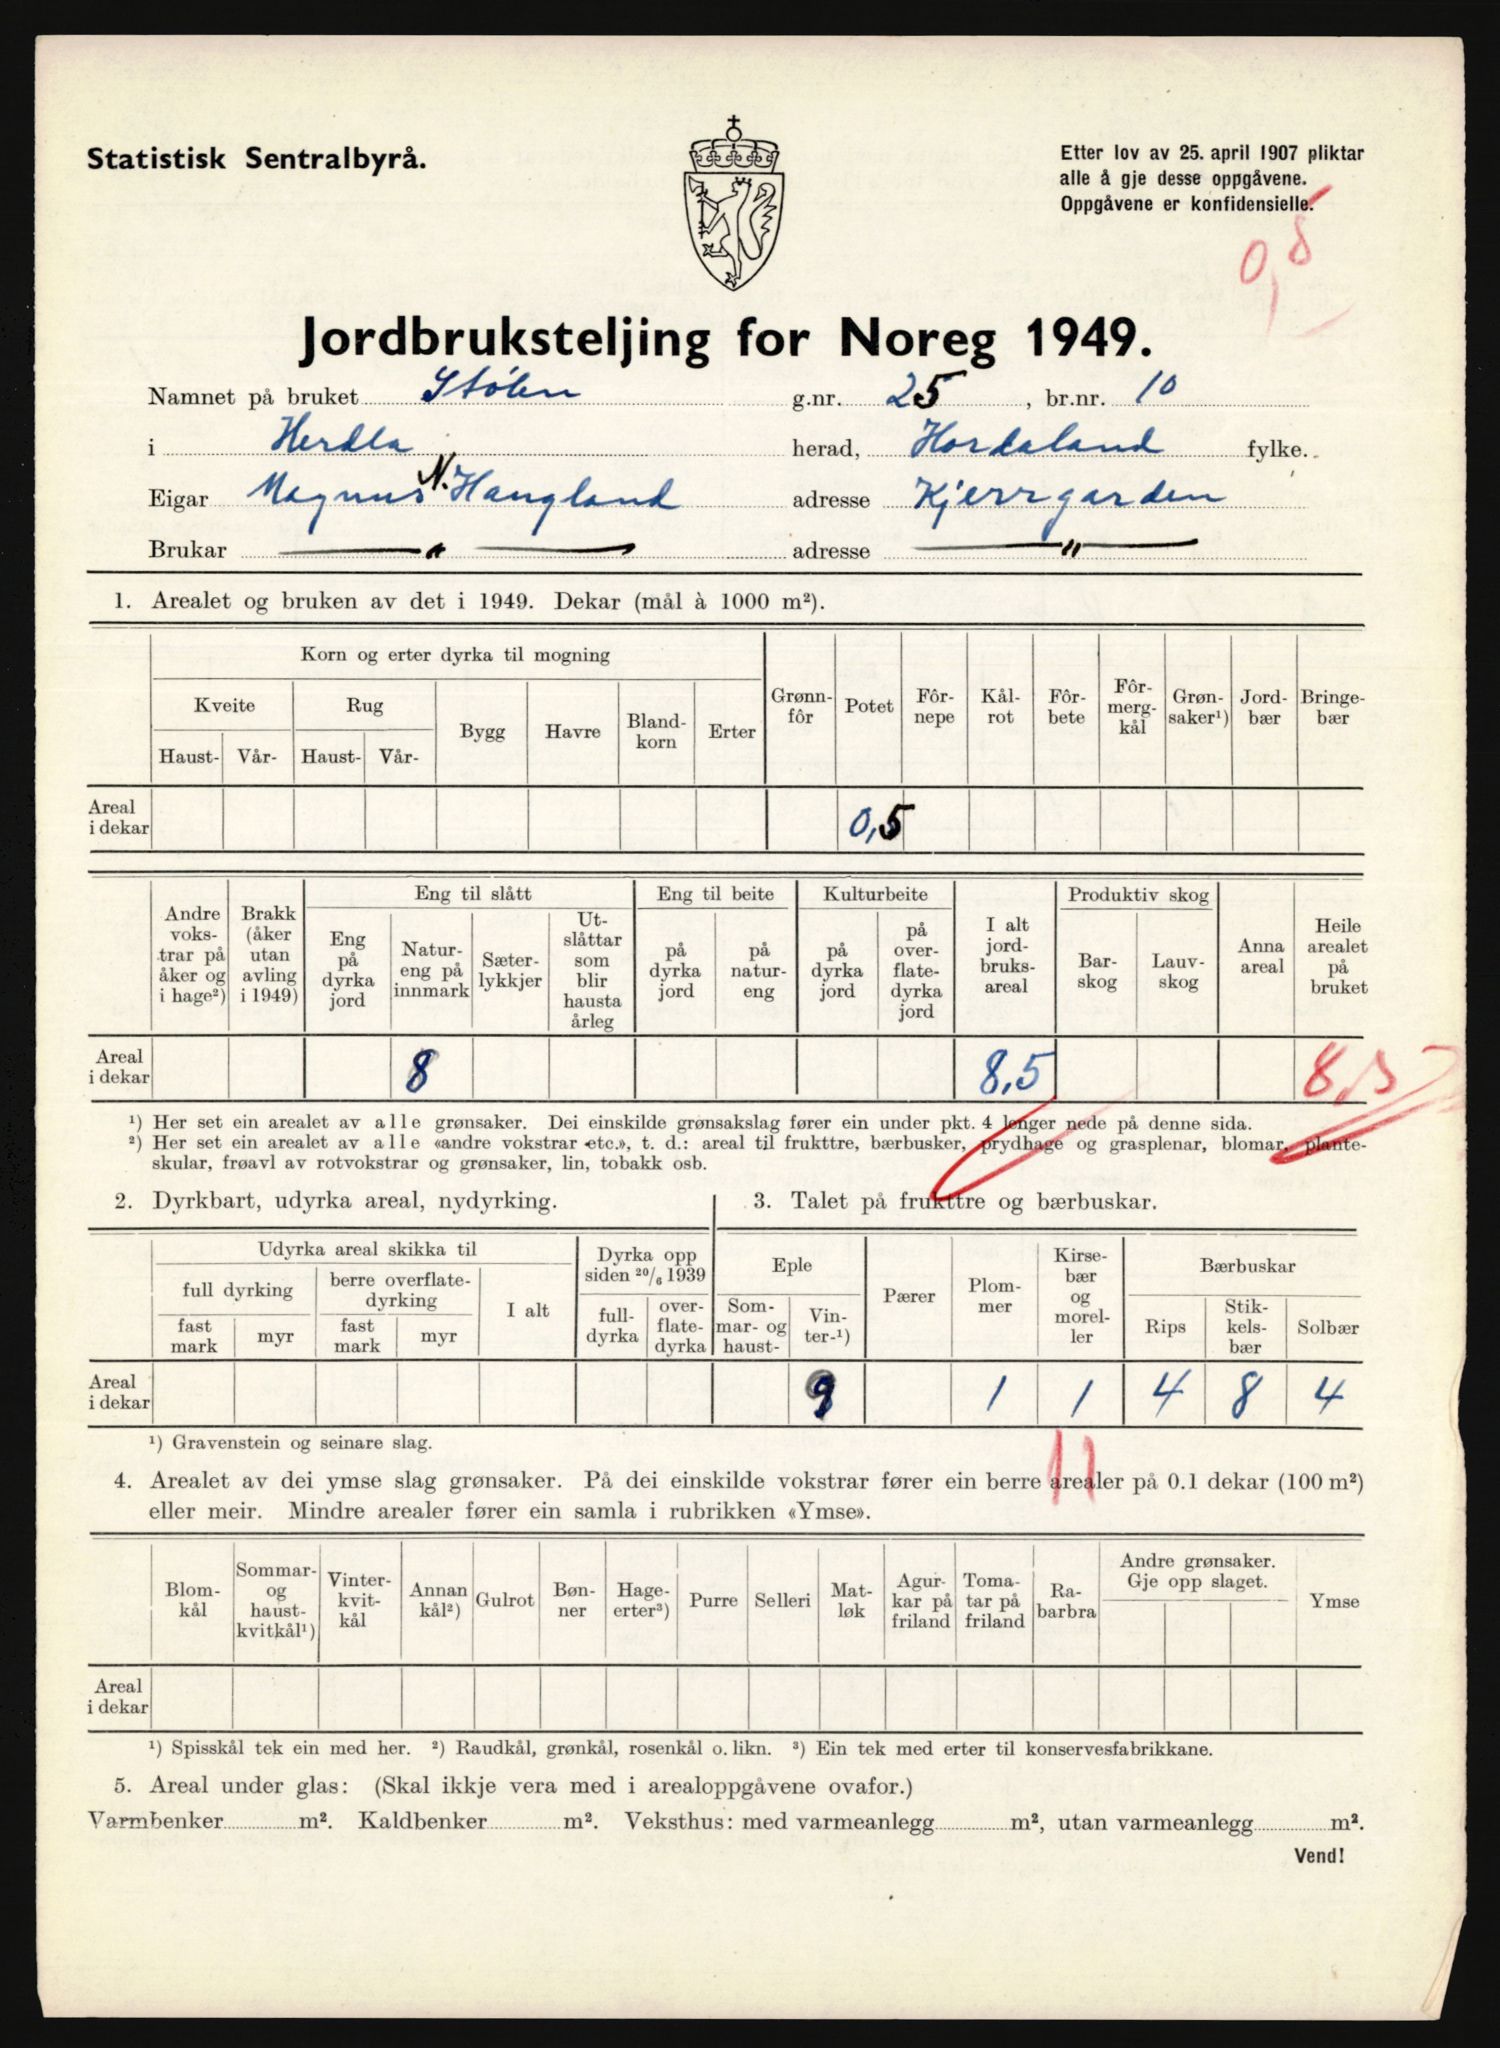 Statistisk Sentralbyrå.
Etter lov av 25. april 1907 pliktar
alle å gje desse oppgåvene.
Oppgåvene er konfidensielle.
0,5
Jordbruksteljing for Noreg 1949.
Namnet på bruket Stølen g.nr. 25, br.nr. 10
i Herdla herad, Hordaland fylke.
Eigar Magnus N. Haugland adresse Kjerrgarden
Brukar — " — adresse — " —
1. Arealet og bruken av det i 1949. Dekar (mål à 1000 m²).
Korn og erter dyrka til mogning
Kveite Rug Bygg Havre Bland-korn Erter Grønn-fôr Potet Fôr-nepe Kål-rot Fôr-bete Fôr-merg-kål Grøn-saker¹) Jord-bær Bringe-bær
Haust- Vår- Haust- Vår-
Areal i dekar 0,5
Andre voks-trar på åker og i hage²) Brakk (åker utan avling i 1949) Eng til slått Eng til beite Kulturbeite I alt jord-bruks-areal Produktiv skog Anna areal Heile arealet på bruket
Eng på dyrka jord Natur-eng på innmark Sæter-lykkjer Ut-slåttar som blir hausta årleg på dyrka jord på natur-eng på dyrka jord på over-flate-dyrka jord Bar-skog Lauv-skog
Areal i dekar 8 8,5 8,5
¹) Her set ein arealet av alle grønsaker. Dei einskilde grønsakslag fører ein under pkt. 4 lenger nede på denne sida.
²) Her set ein arealet av alle «andre vokstrar etc.», t. d.: areal til frukttre, bærbusker, prydhage og grasplenar, blomar, plante-
skular, frøavl av rotvokstrar og grønsaker, lin, tobakk osb.
2. Dyrkbart, udyrka areal, nydyrking. 3. Talet på frukttre og bærbuskar.
Udyrka areal skikka til Dyrka opp siden 20/6 1939 Eple Pærer Plom-mer Kirse-bær og morel-ler Bærbuskar
full dyrking berre overflate-dyrking I alt full-dyrka over-flate-dyrka Som-mar- og haust- Vin-ter-¹) Rips Stik-kels-bær Solbær
fast mark myr fast mark myr
Areal i dekar 9 1 1 4 8 4
¹) Gravenstein og seinare slag.
11
4. Arealet av dei ymse slag grønsaker. På dei einskilde vokstrar fører ein berre arealer på 0.1 dekar (100 m²)
eller meir. Mindre arealer fører ein samla i rubrikken «Ymse».
Blom-kål Sommar- og haust-kvitkål¹) Vinter-kvit-kål Annan kål²) Gulrot Bøn-ner Hage-erter³) Purre Selleri Mat-løk Agur-kar på friland Toma-tar på friland Ra-barbra Andre grønsaker. Gje opp slaget. Ymse
Areal i dekar
¹) Spisskål tek ein med her. ²) Raudkål, grønkål, rosenkål o. likn. ³) Ein tek med erter til konservesfabrikkane.
5. Areal under glas: (Skal ikkje vera med i arealoppgåvene ovafor.)
Varmbenker m². Kaldbenker m². Veksthus: med varmeanlegg m², utan varmeanlegg m².
Vend!